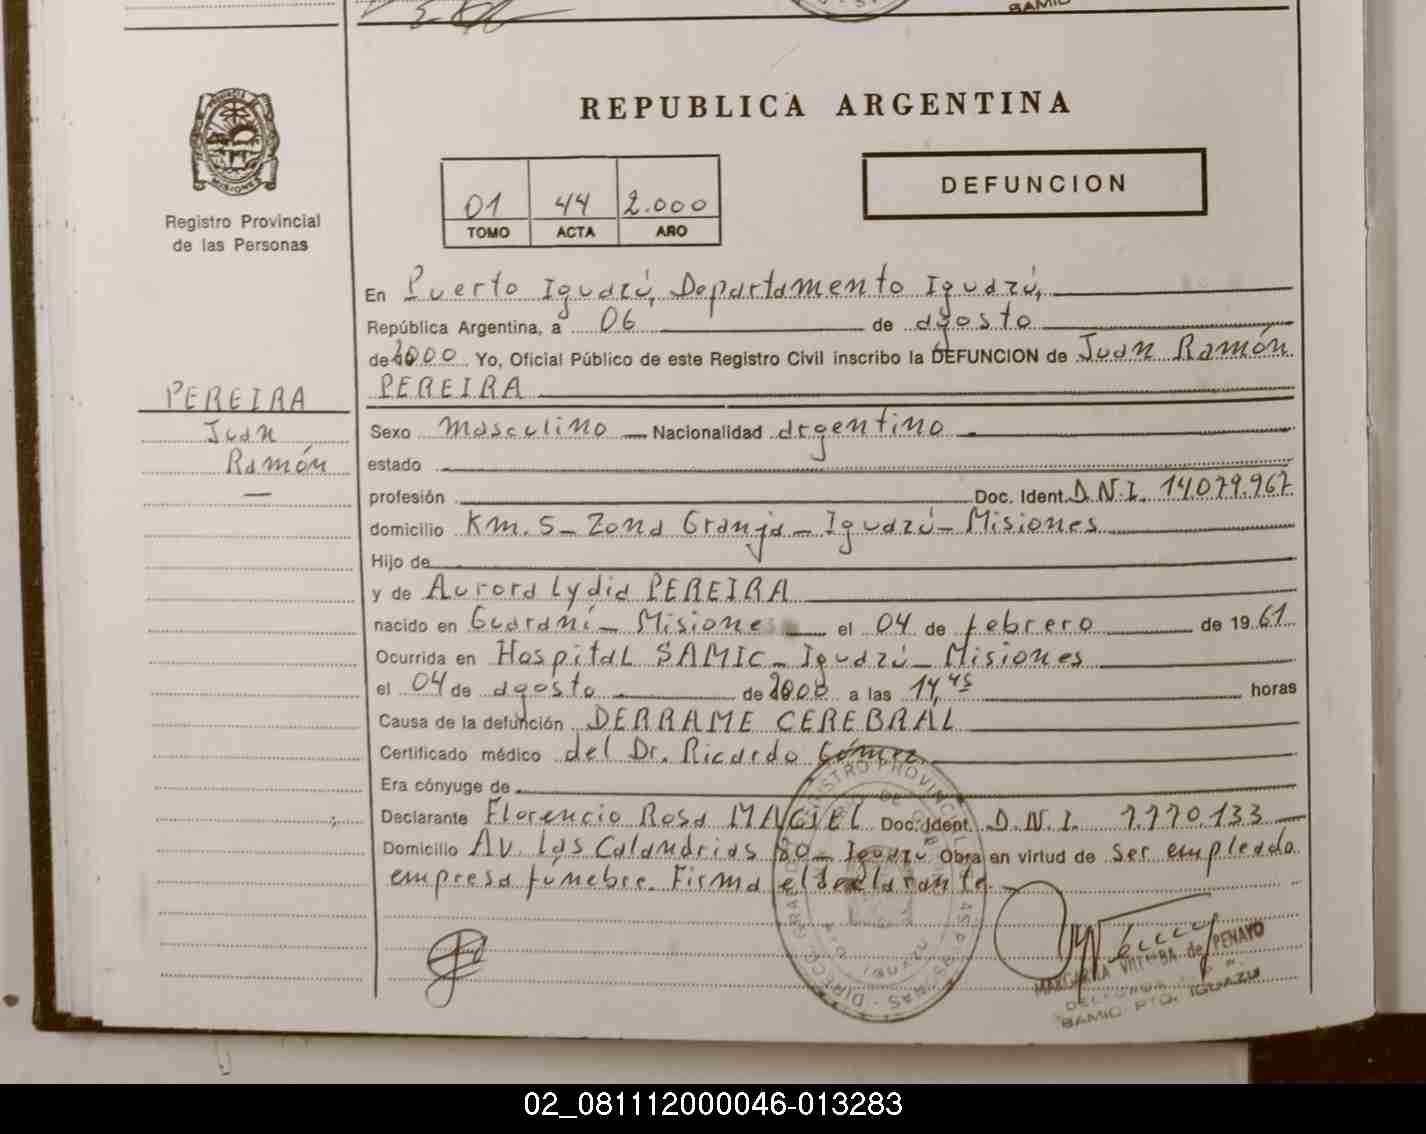 SAMIC
PROVINCIA DE
MISIONES
Registro Provincial
de las Personas
REPUBLICA ARGENTINA
DEFUNCION
01 44 2.000
TOMO ACTA AÑO
En Puerto Iguazú, Departamento Iguazú,
República Argentina, a 06 de agosto
de 2000 Yo, Oficial Público de este Registro Civil inscribo la DEFUNCION de Juan Ramón
PEREIRA
PEREIRA
Juan
Ramón
Sexo masculino Nacionalidad argentino
estado
profesión Doc. Ident. D.N.I. 14.079.967
domicilio Km. 5 - Zona Granja - Iguazú - Misiones
Hijo de
y de Aurora Lydia PEREIRA
nacido en Guaraní - Misiones el 04 de febrero de 1961
Ocurrida en Hospital SAMIC - Iguazú - Misiones
el 04 de agosto de 2000 a las 14,45 horas
Causa de la defunción DERRAME CEREBRAL
Certificado médico del Dr. Ricardo Gómez
Era cónyuge de
Declarante Florencio Rosa MACIEL Doc. Ident. D.N.I. 7.770.133
Domicilio Av. Las Calandrias 80 - Iguazú Obra en virtud de ser empleado
empresa fúnebre. Firma el declarante.
MARGARITA VILLALBA de PENAYO
SAMIC PTO. IGUAZU
02_081112000046-013283